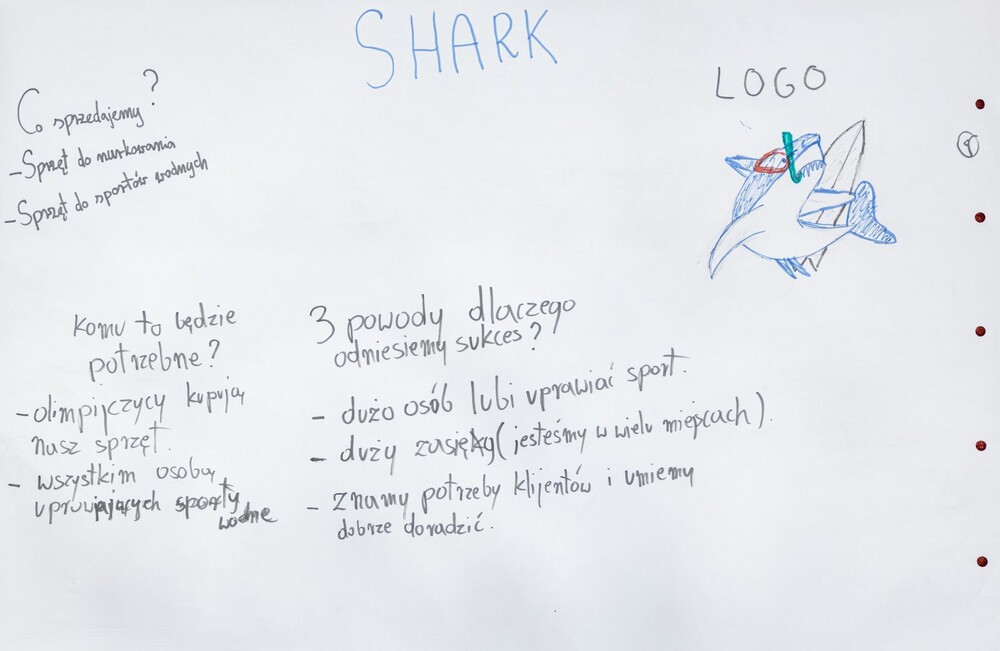 SHARK
LOGO
Co sprzedajemy?
- Sprzęt do nurkowania
- Sprzęt do sportów wodnych
Komu to będzie
potrzebne?
- olimpijczycy kupują
nasz sprzęt.
- wszystkim osobą
uprawiających sporty
wodne
3 powody dlaczego
odniesiemy sukces?
- dużo osób lubi uprawiać sport.
- duży zasięg (jesteśmy w wielu miejscach).
- znamy potrzeby klijentów i umiemy
dobrze doradzić.